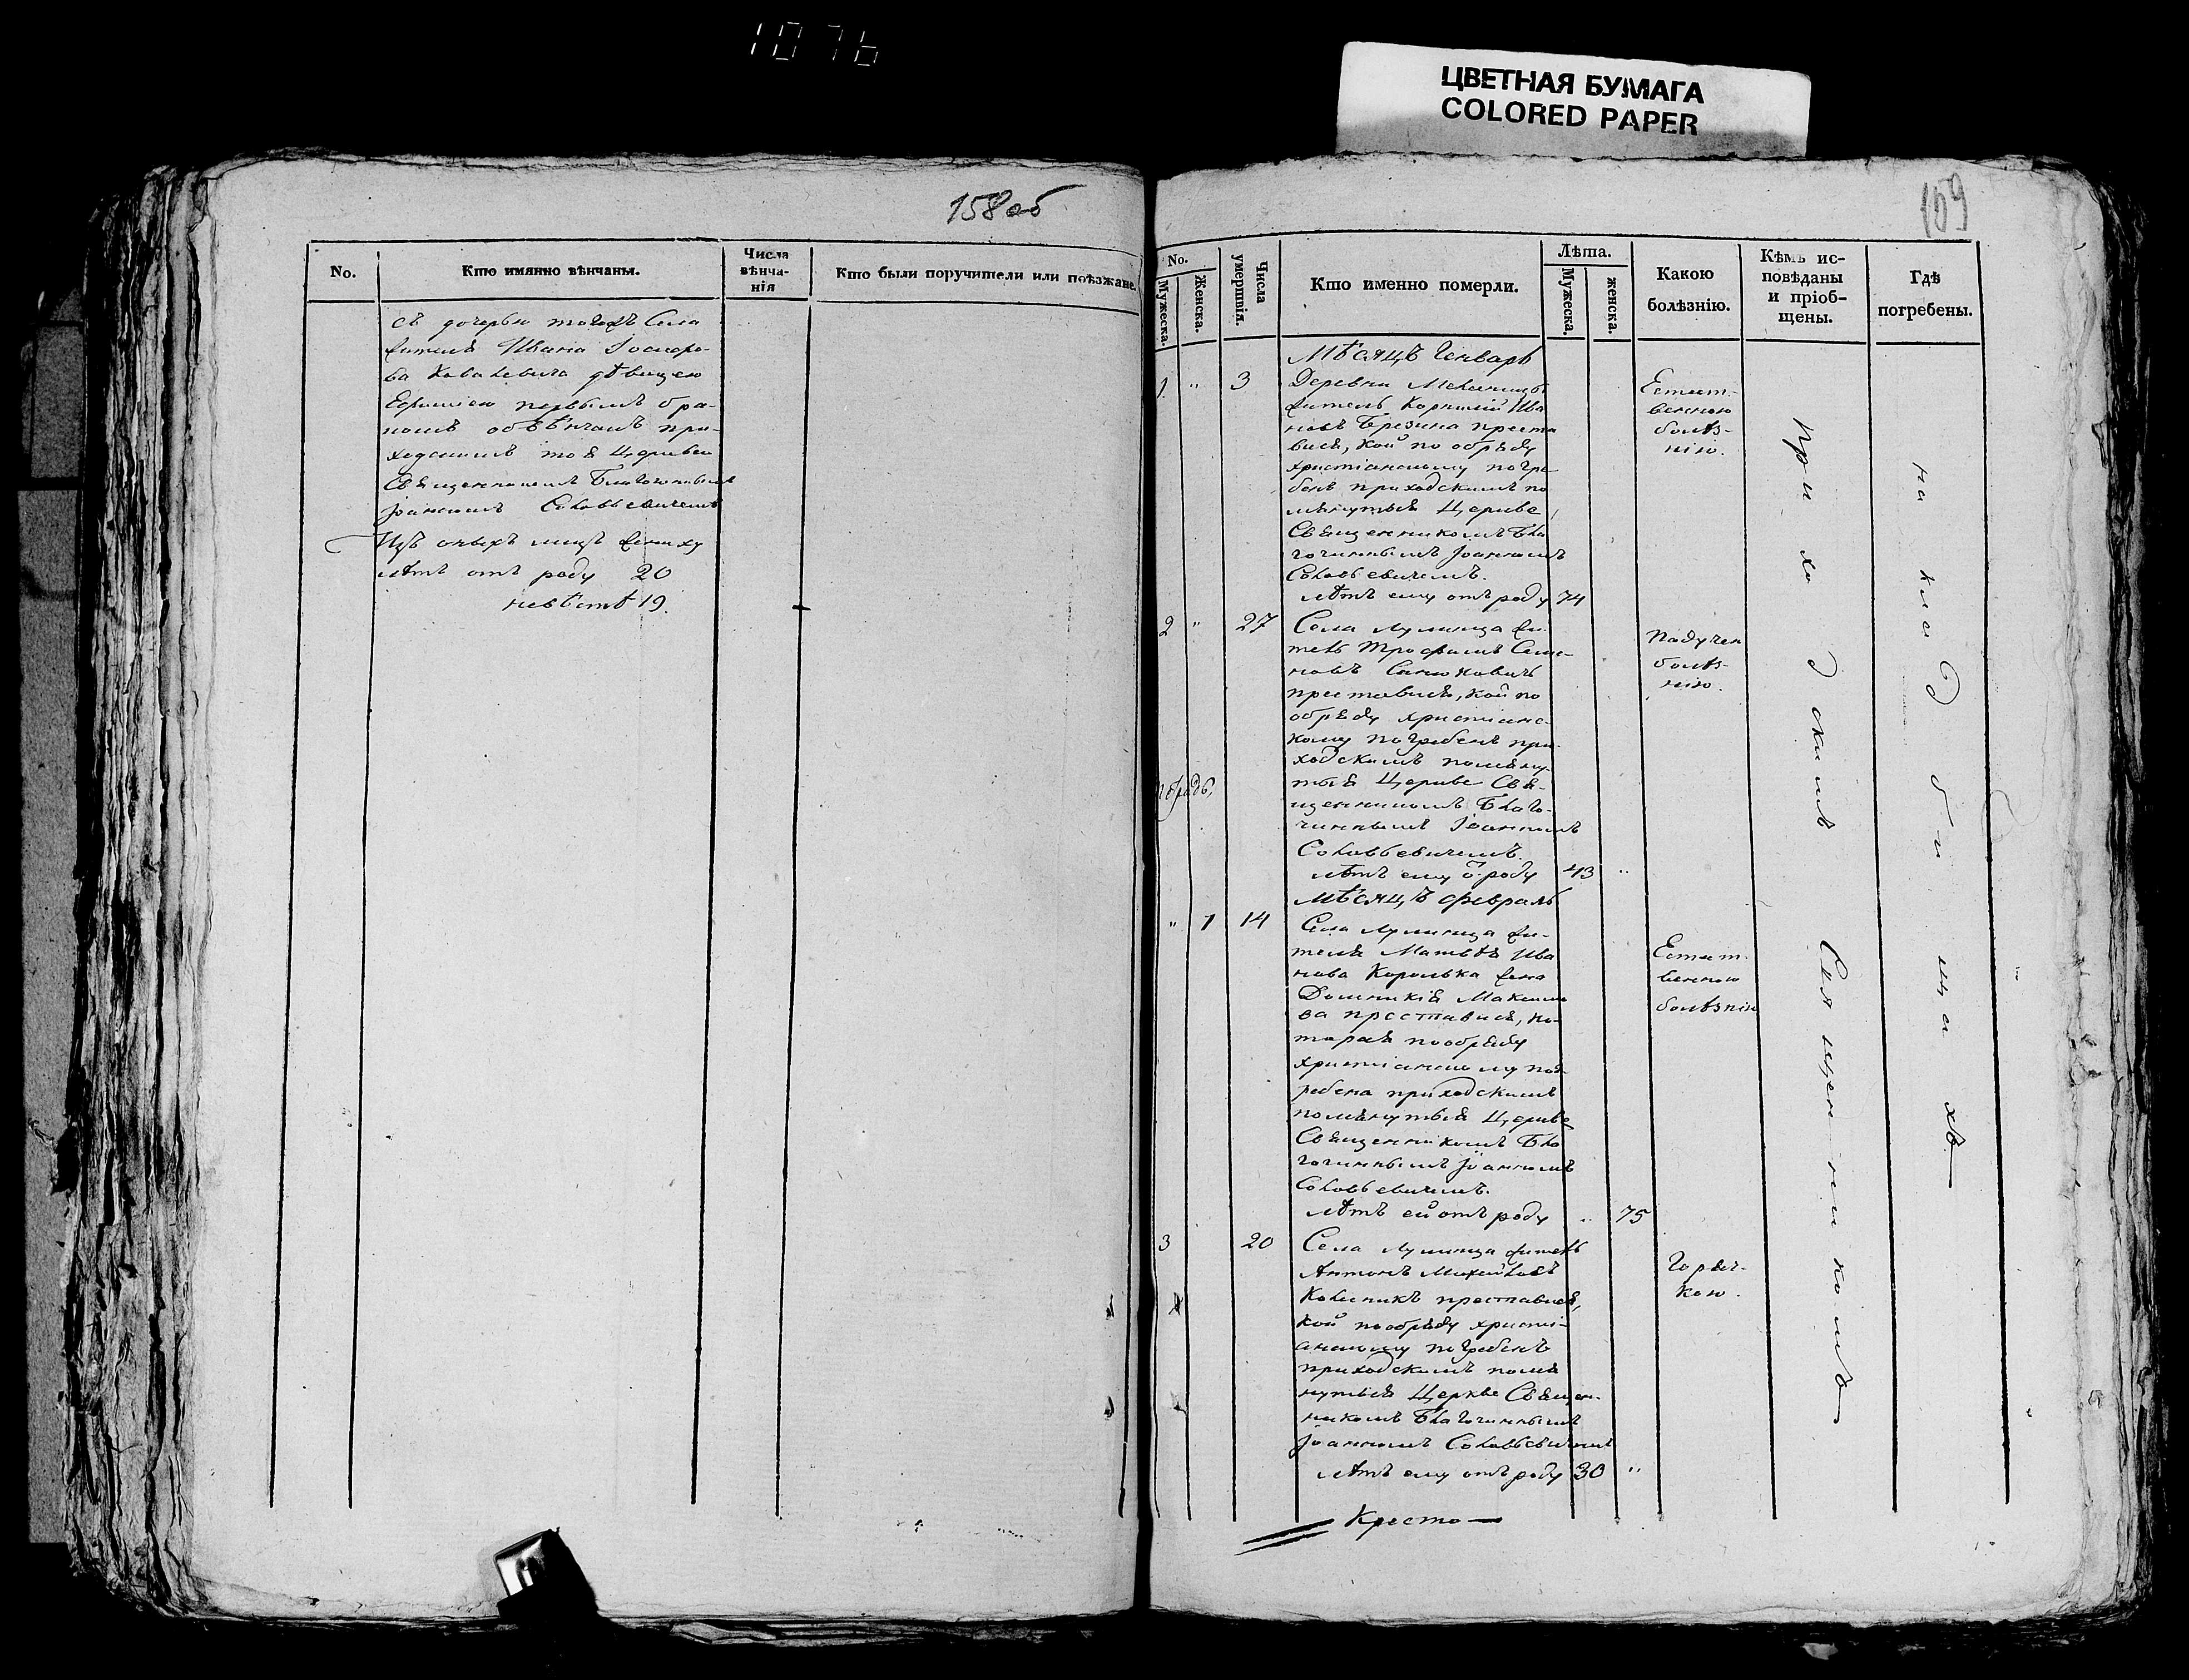 1076
ЦВЕТНАЯ БУМАГА
COLORED PAPER
158 об
No.
Кто имянно вѣнчаны.
Числа вѣнча-нія
Кто были поручители или поѣзжане.
съ дочерью тогожъ Села
жителя Ивана
ба Ковалевича дѣвицею
Ефимiею первымъ бра-
комъ обвѣнчанъ при-
ходскимъ тоя Церкви
Священникомъ Благочиннымъ
Іоанномъ Соловьевичемъ
Изъ оныхъ лицъ жениху
лѣтъ отъ роду 20
невѣстѣ 19.
159
No.
Мужеска.
Женска.
Числа умершвія.
Кто именно померли.
Лѣта.
Мужеска.
женска.
Какою болѣзнію.
Кѣмъ ис-повѣданы и пріоб-щены.
Гдѣ погребены.
Мѣсяцъ Генварь
1 " 3 Деревни
житель Корнилій Ива
новъ Брезина преста
вися, кой по обряду
христіанскому погре
бенъ приходскимъ по
мянутыя Церкве
Священникомъ Бла
гочиннымъ Іоанномъ
Соловьевичемъ.
лѣтъ ему отъ роду 74
Естест-
венною
болѣз-
нію.
2 " 27 Села Лунинца жи-
тель Трофимъ Семе-
новъ
преставися, кой по
обряду христіанс
кому погребенъ при
ходскимъ помяну
тыя Церкве Свя-
щенникомъ Благо-
чиннымъ Іоанномъ
Соловьевичемъ.
лѣтъ ему о роду 43 "
Падучею
болѣз-
нію.
Мѣсяцъ февраль
" 1 14 Села Лунинца жи-
теля Матвѣя Ива
нова Королька жена
Домникія Максимо
ва преставися, ко-
торая по обряду
христіанскому пог-
ребена приходскимъ
помянутыя Церкве
Священникомъ Бла
гочиннымъ Іоанномъ
Соловьевичемъ.
лѣтъ ей отъ роду " 75
Естест-
венною
болѣзнію
3 20 Села Лунинца житель
Антонъ Михайловъ
Колесникъ преставися,
кой по обряду христі-
анскому погребенъ
приходскимъ помя
нутыя Церкве Священ-
никомъ Благочиннымъ
Іоанномъ Соловьевичемъ
лѣтъ ему отъ роду 30 "
Горяч-
кою.
Приходскимъ Священникомъ
на кладбищахъ
Кресто